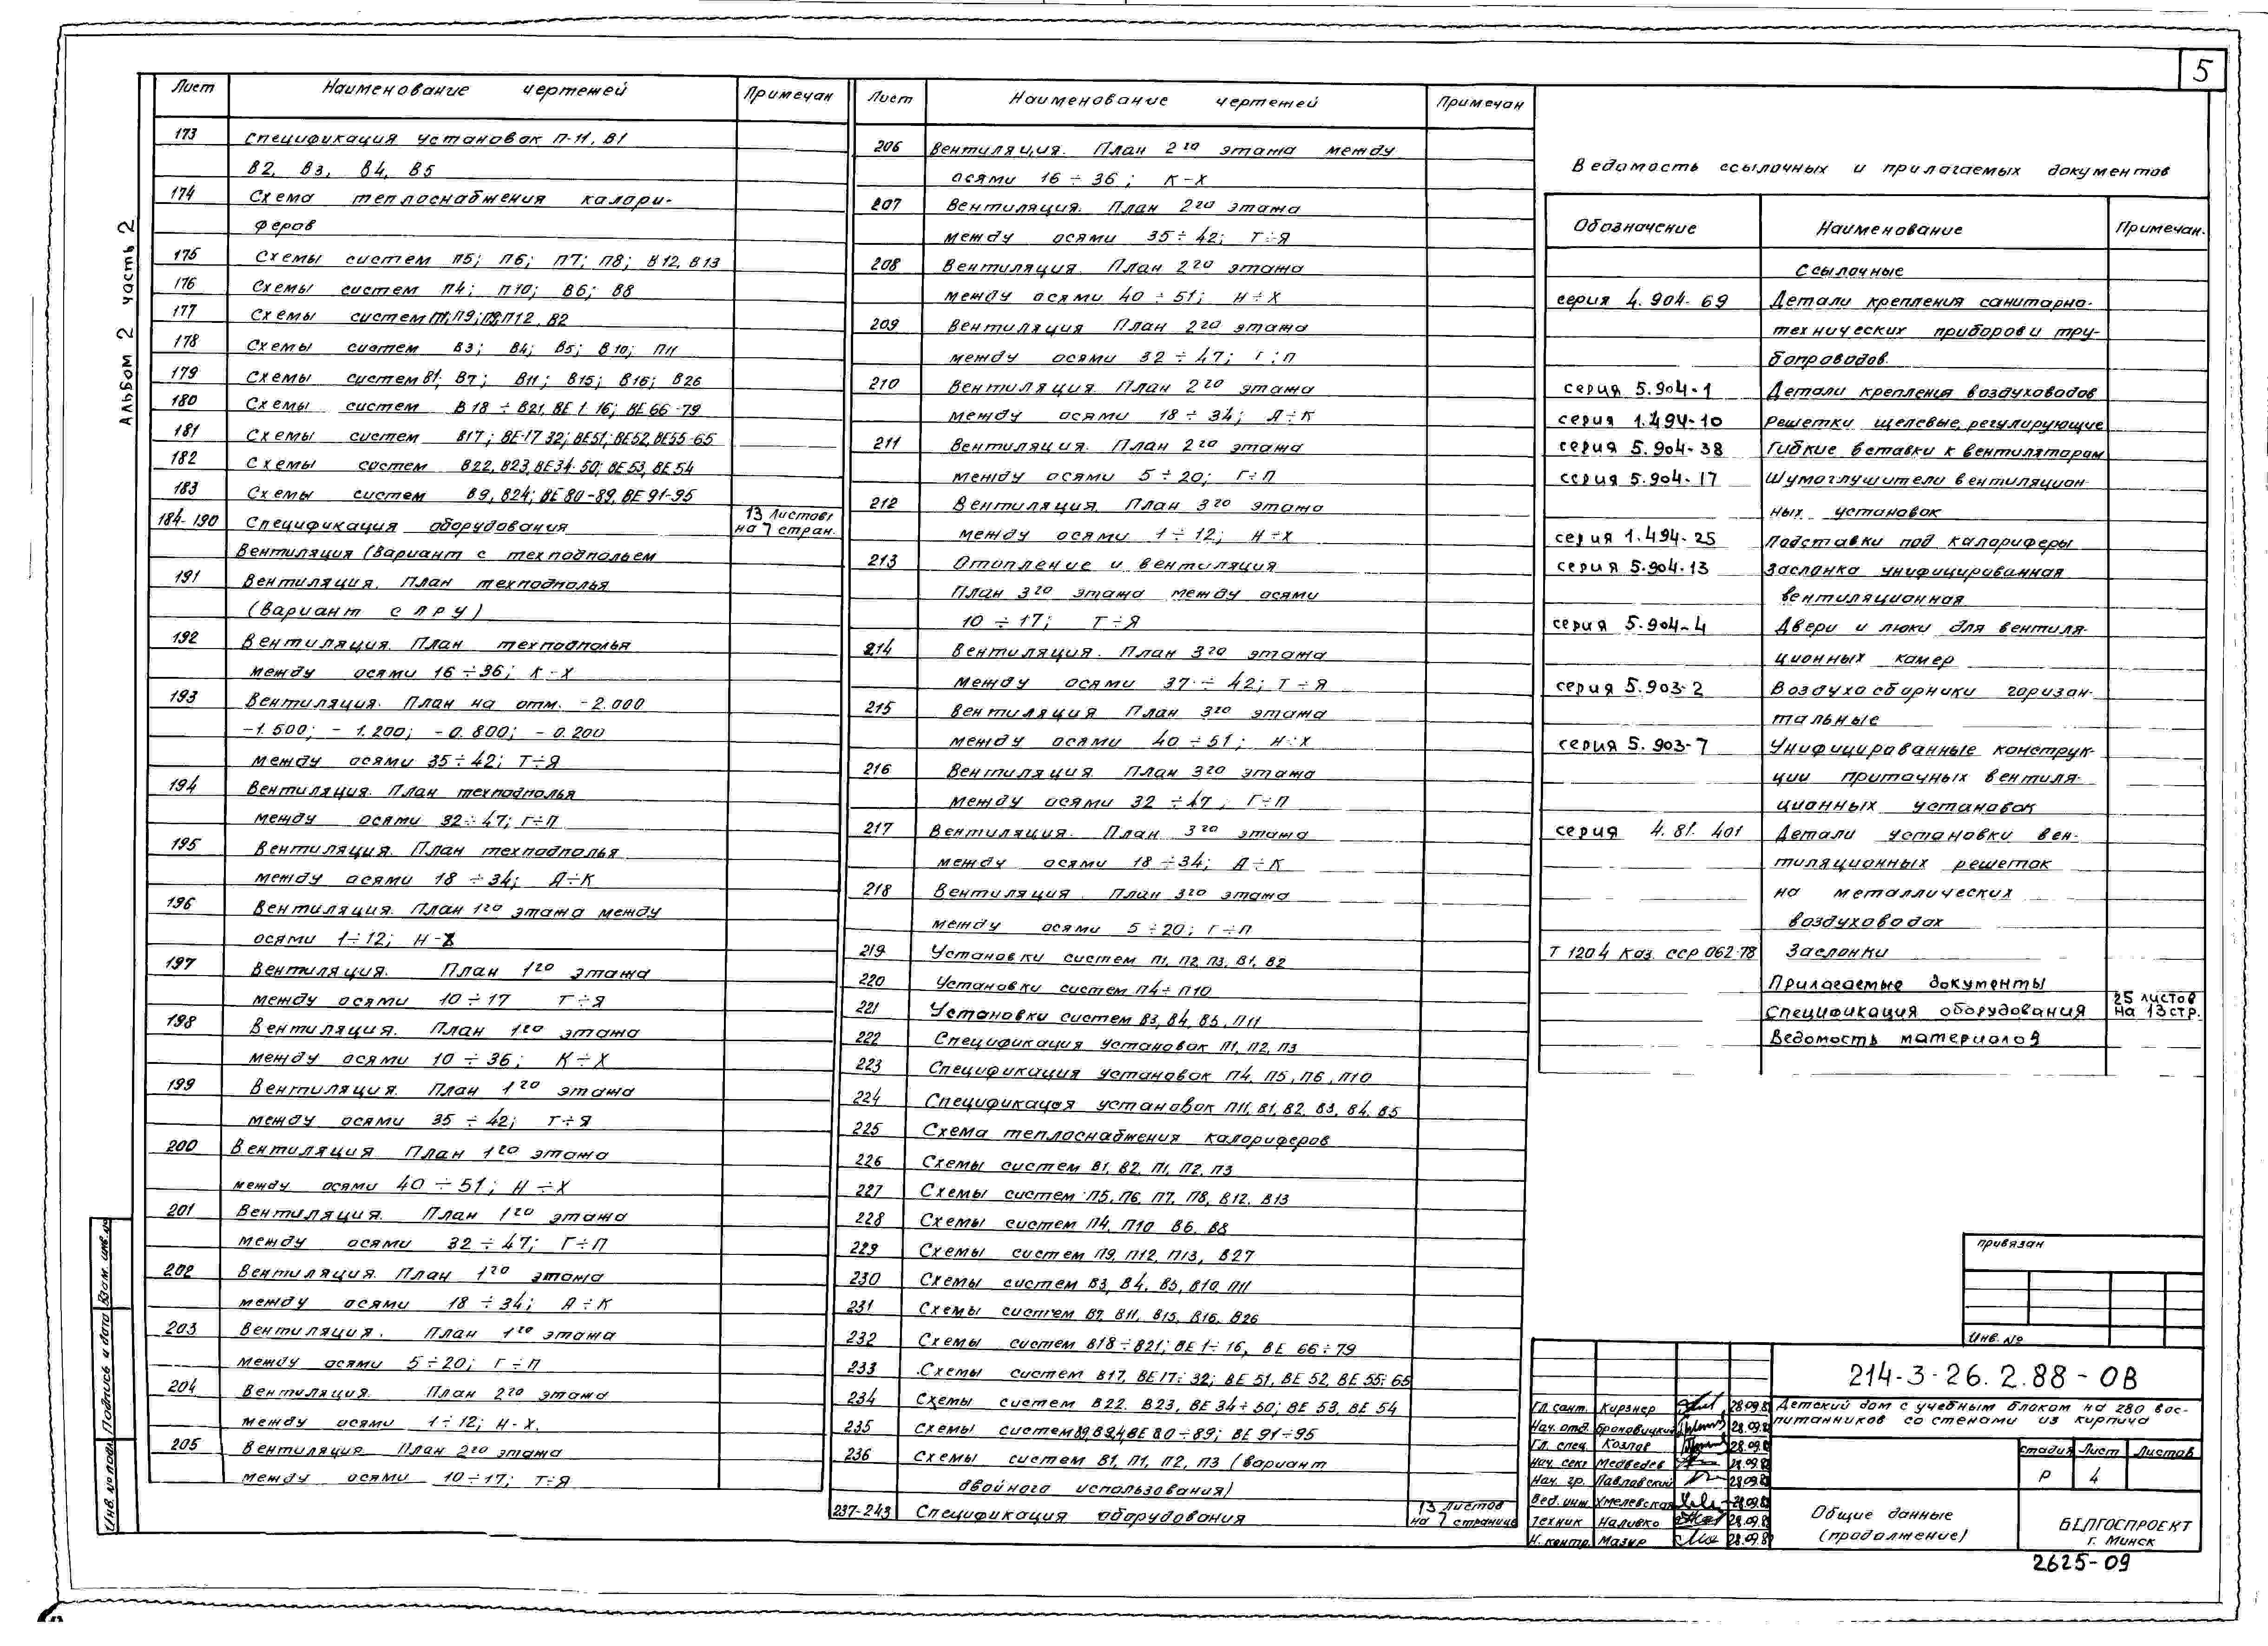 5
Альбом 2 часть 2
Лист Наименование чертежей Примечан
173 Спецификация установок П-11, В1
В2, В3, В4, В5
174 Схема теплоснабжения калори-
феров
175 Схемы систем П5; П6; П7; П8; В12, В13
176 Схемы систем П4; П10; В6; В8
177 Схемы систем П9; П12, В2
178 Схемы систем В3; В4; В5; В10; П11
179 Схемы систем В1, В7; В11; В15; В16; В26
180 Схемы систем В18÷В21, ВЕ 1 16; ВЕ 66-79
181 Схемы систем В17; ВЕ-17 32; ВЕ51; ВЕ52, ВЕ55-65
182 Схемы систем В22, В23, ВЕ34-50; ВЕ53, ВЕ54
183 Схемы систем В9, В24; ВЕ 80-89, ВЕ 91-95
184-190 Спецификация оборудования 13 листов
на 7 стран.
Вентиляция (Вариант с техподпольем
191 Вентиляция. План техподполья
(вариант с ПРУ)
192 Вентиляция. План техподполья
между осями 16÷36; К-Х
193 Вентиляция. План на отм. -2.000
-1.500; -1.200; -0.800; -0.200
между осями 35÷42; Т÷Я
194 Вентиляция. План техподполья
между осями 32÷47; Г÷П
195 Вентиляция. План техподполья
между осями 18÷34; Д÷К
196 Вентиляция. План 1го этажа между
осями 1÷12; Н-Х
197 Вентиляция. План 1го этажа
между осями 10÷17 Т÷Я
198 Вентиляция. План 1го этажа
между осями 10÷36; К÷Х
199 Вентиляция. План 1го этажа
между осями 35÷42; Т÷Я
200 Вентиляция План 1го этажа
между осями 40÷51; Н÷Х
201 Вентиляция. План 1го этажа
между осями 32÷47; Г÷П
202 Вентиляция. План 1го этажа
между осями 18÷34; Д÷К
203 Вентиляция. План 1го этажа
между осями 5÷20; Г÷П
204 Вентиляция. План 2го этажа
между осями 1÷12; Н-Х.
205 Вентиляция План 2го этажа
между осями 10÷17; Т÷Я
Лист Наименование чертежей Примечан
206 Вентиляция. План 2го этажа между
осями 16÷36; К-Х
207 Вентиляция. План 2го этажа
между осями 35÷42; Т÷Я
208 Вентиляция. План 2го этажа
между осями 40÷51; Н÷Х
209 Вентиляция План 2го этажа
между осями 32÷47; Г÷П
210 Вентиляция. План 2го этажа
между осями 18÷34; Д÷К
211 Вентиляция. План 2го этажа
между осями 5÷20; Г÷П
212 Вентиляция. План 3го этажа
между осями 1÷12; Н÷Х
213 Отопление и вентиляция
План 3го этажа между осями
10÷17; Т÷Я
214 Вентиляция. План 3го этажа
между осями 37÷42; Т÷Я
215 Вентиляция План 3го этажа
между осями 40÷51; Н÷Х
216 Вентиляция План 3го этажа
между осями 32÷47; Г÷П
217 Вентиляция. План 3го этажа
между осями 18÷34; Д÷К
218 Вентиляция. План 3го этажа
между осями 5÷20; Г÷П
219 Установки систем П1, П2, П3, В1, В2
220 Установки систем П4÷П10
221 Установки систем В3, В4, В5, П11
222 Спецификация установок П1, П2, П3
223 Спецификация установок П4, П5, П6, П10
224 Спецификация установок П11, В1, В2, В3, В4, В5
225 Схема теплоснабжения калориферов
226 Схемы систем В1, В2, П1, П2, П3
227 Схемы систем П5, П6, П7, П8, В12, В13
228 Схемы систем П4, П10 В6, В8
229 Схемы систем П9, П12, П13, В27
230 Схемы систем В3, В4, В5, В10, П11
231 Схемы систем В7, В11, В15, В16, В26
232 Схемы систем В18÷В21; ВЕ 1÷16, ВЕ 66÷79
233 Схемы систем В17, ВЕ17÷32; ВЕ 51, ВЕ 52, ВЕ 55÷65
234 Схемы систем В22, В23, ВЕ 34÷50; ВЕ 53, ВЕ 54
235 Схемы систем В9, В24, ВЕ 80÷89; ВЕ 91÷95
236 Схемы систем В1, П1, П2, П3 (вариант
двойного использования)
237-243 Спецификация оборудования 13 листов
на 7 странице
Ведомость ссылочных и прилагаемых документов
Обозначение Наименование Примечан.
Ссылочные
серия 4.904-69 Детали крепления санитарно-
технических приборов и тру-
бопроводов.
серия 5.904-1 Детали крепления воздуховодов
серия 1.494-10 Решетки щелевые, регулирующие
серия 5.904-38 Гибкие вставки к вентиляторам
серия 5.904-17 Шумоглушители вентиляцион-
ных установок
серия 1.494-25 Подставки под калориферы
серия 5.904-13 Заслонка унифицированная
вентиляционная
серия 5.904-4 Двери и люки для вентиля-
ционных камер
серия 5.903-2 Воздухосборники горизон-
тальные
серия 5.903-7 Унифицированные конструк-
ции приточных вентиля-
ционных установок
серия 4.81.401 Детали установки вен-
тиляционных решеток
на металлических
воздуховодах
Т 1204 Каз. ССР 062-78 Заслонки
Прилагаемые документы
Спецификация оборудования 25 листов
на 13 стр.
Ведомость материалов
привязан
Инв. №
214-3-26.2.88-ОВ
Гл. сант. Кирзнер 28.09.8
Нач. отд. Броновицкий 28.09.8
Гл. спец. Козлов 28.09.8
Нач. сект Медведев 28.09.8
Нач. гр. Павловский 28.09.8
Вед. инж Хмелевская 28.09.8
Техник Наливко 28.09.8
Н. контр. Мазур 28.09.8
Детский дом с учебным блоком на 280 вос-
питанников со стенами из кирпича
стадия Лист Листов
Р 4
Общие данные
(продолжение)
БЕЛГОСПРОЕКТ
г. Минск
2625-09
Взам. инв. №
Подпись и дата
Инв. № подл.